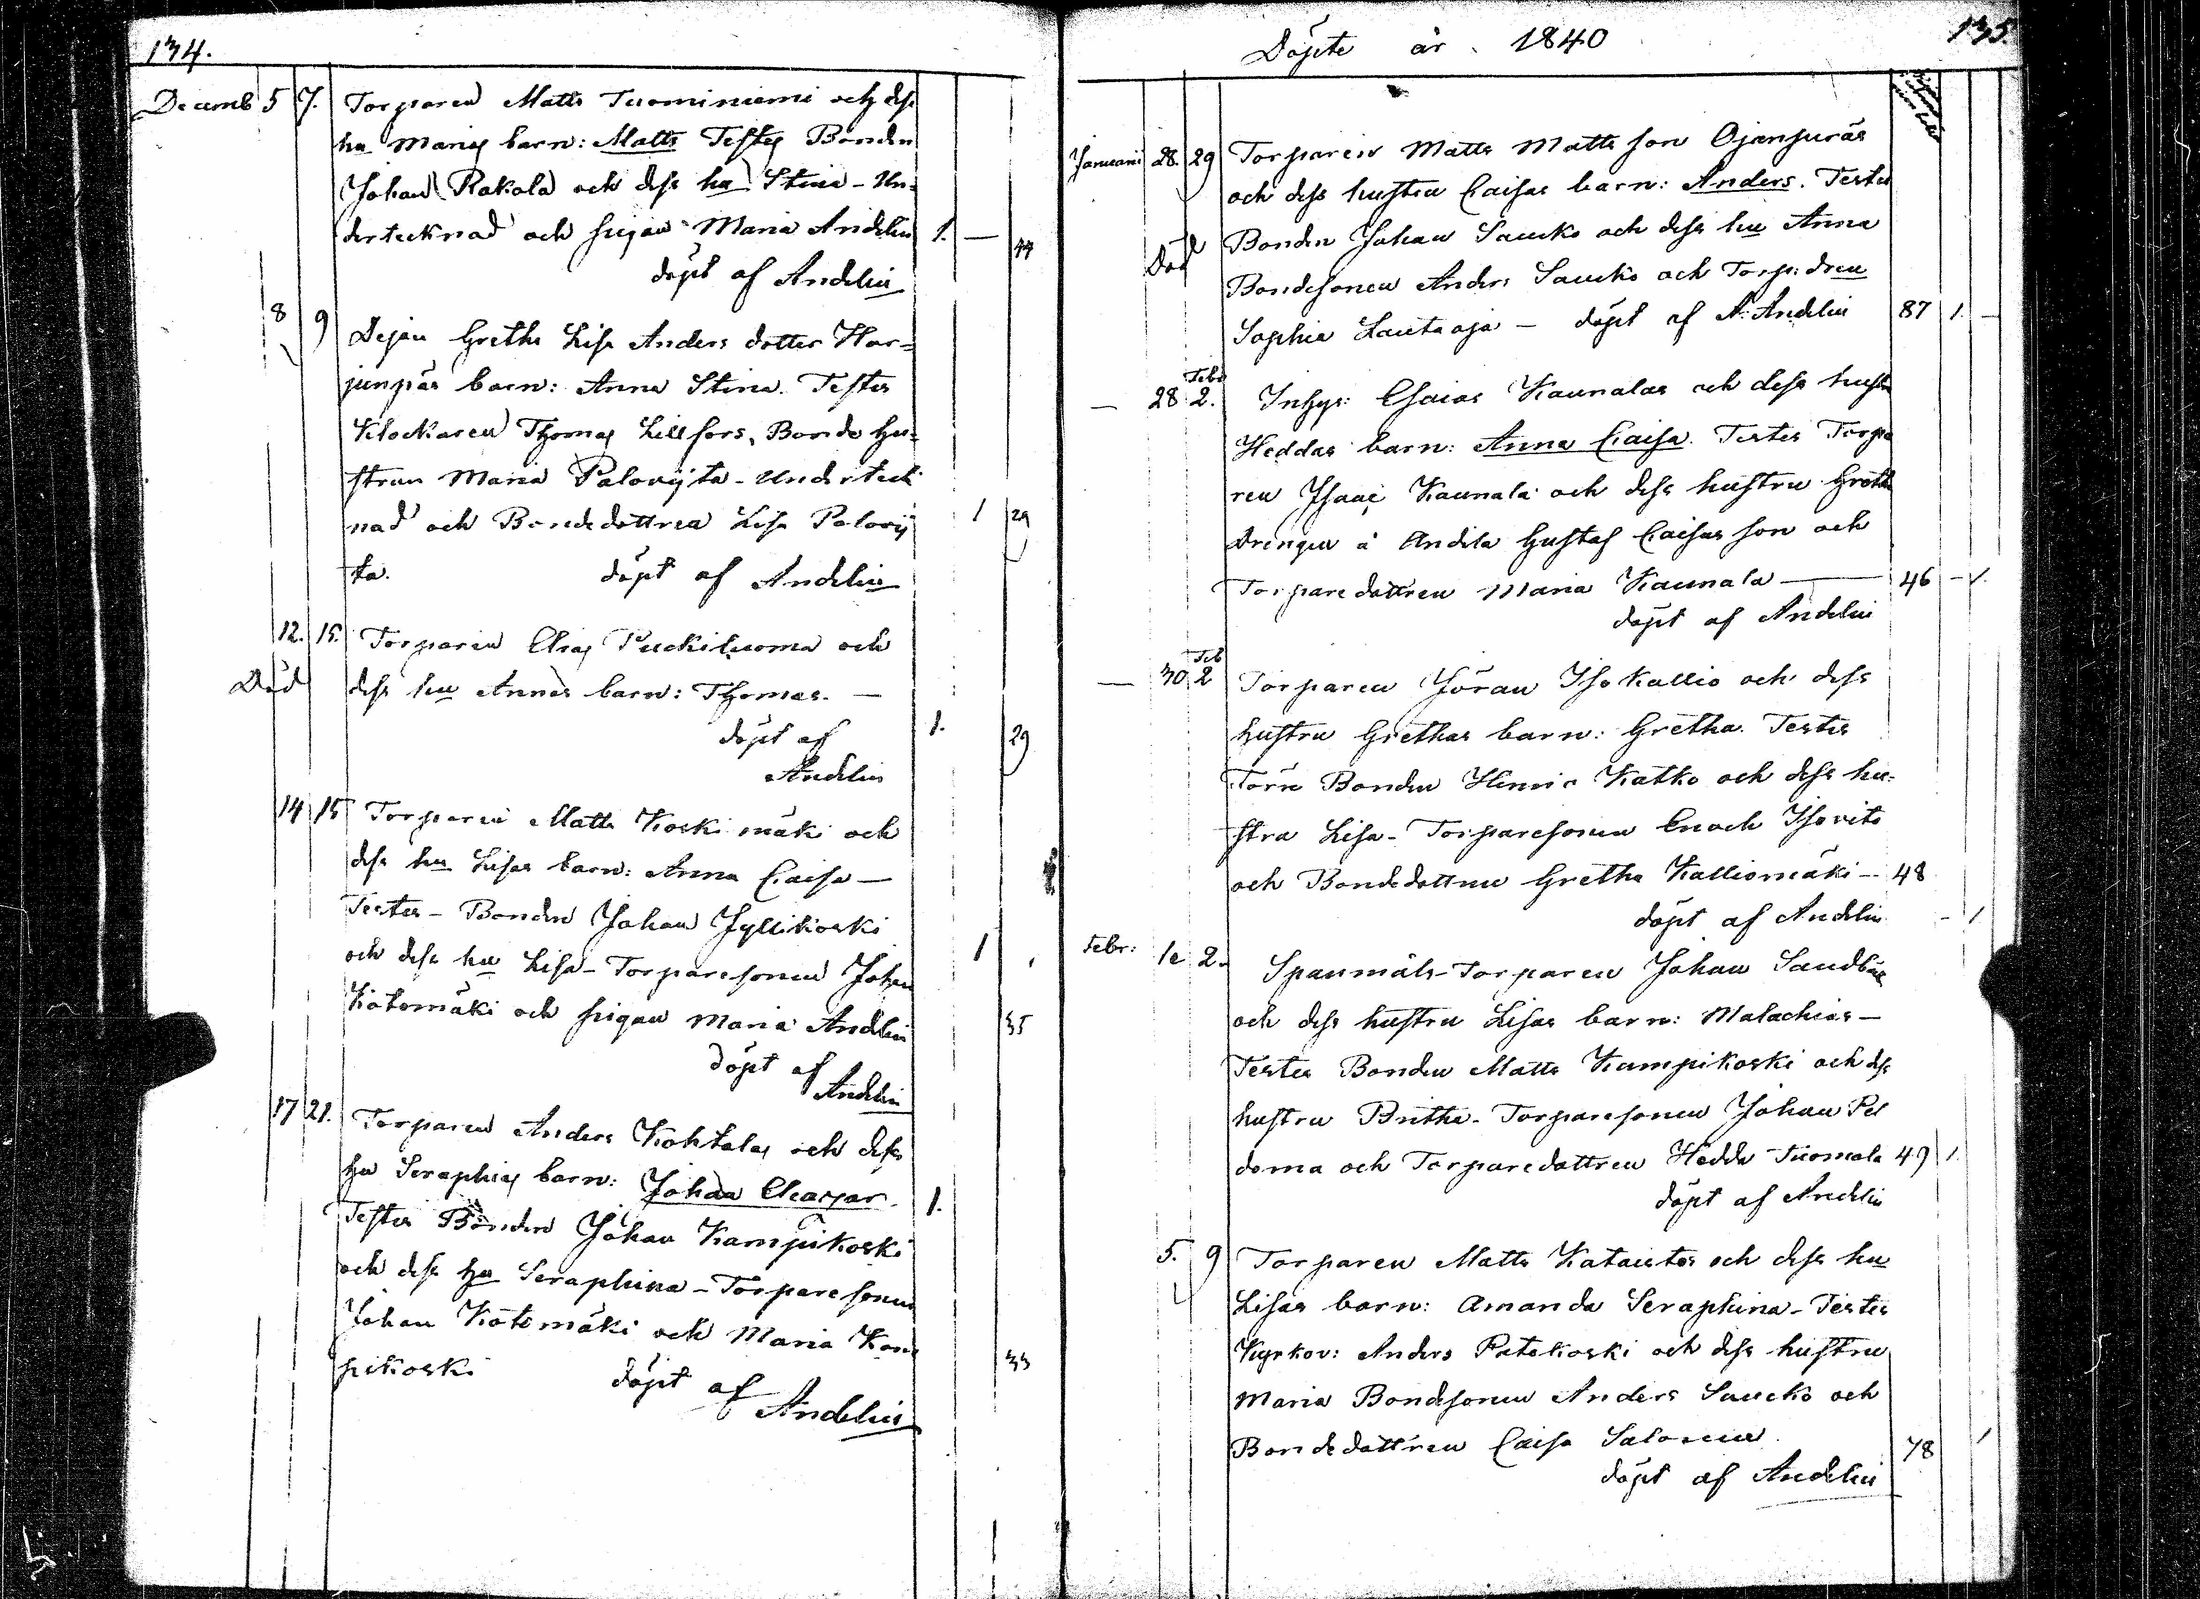 134.
Decemb 5 7. Torparen Matts Tuominiemi och dess
hu Marias barn: Matts Testes Bonden
Johan Rakola och dess hu Stina - Un-
dertecknad och pigan Maria Andelin 1. — 44
döpt af Andelin
8 9 Pigan Greta Lisa Anders dotter Har-
junpäs barn: Anna Stina. Testes
Klockaren Thomas Lillfors, Bonde hu-
strun Maria Palovijta - Underteck
nad och Bondedottren Lisa Palovij 1 29
ta. döpt af Andelin
12. 15. Torparen Elias Puckiluoma och
Död dess hu Annas barn: Thomas. —
döpt af 1. 29
Andelin
14 15 Torparen Matts Koskimäki och
dess hu Lisas barn: Anna Caisa —
Testes - Bonden Johan Jyllikoski
och dess hu Lisa - Torparesonen Johan 1
Kötömäki och pigan Maria Andelin 35
döpt af
Andelin
17 21. Torparen Anders Kohtalas och dess
hu Seraphias barn: Johan Eleazar. 1.
Testes Bonden Johan Kampikoski
och dess hu Seraphina - Torparesonen
Johan Kötömäki och Maria Kam
pikoski 33
döpt af
Andelin
Döpte år 1840 135.
Januarii 28. 29 Torparen Matts Matts son Ojanperäs
och dess hustru Caisas barn: Anders. Testes
Död Bonden Johan Saucko och dess hu Anna
Bondesonen Anders Saucko och Torp:dren
Sophia Lautaoja — döpt af A: Andelin 87 1. —
— 28 Febr 2. Inhys: Esaias Kaunalas och dess hustru
Heddas barn: Anna Caisa. Testes Torpa
ren Isaac Kaunala och dess hustru Greta
Drengen å Andila Gustaf Caisas son och
Torparedottren Maria Kaunala — 46 - 1.
döpt af Andelin
— 30 Feb 2 Torparen Jöran Isokallio och dess
hustru Grethas barn: Gretha. Testes
Bonden Henric Katko och dess hu-
stru Lisa - Torparesonen Enoch Isovito
och Bondedottren Gretha Kalliomäki — 48
döpt af Andelin - 1
Febr: 1e 2. Spanmåls-Torparen Johan Sandbäck
och dess hustru Lisas barn: Malachias —
Testes Bonden Matts Kampikoski och dess
hustru Britha - Torparesonen Johan Pel
doma och Torparedottren Hedda Tuomala 49 1.
döpt af Andelin
5. 9 Torparen Matts Kataistos och dess hu
Lisas barn: Amanda Seraphina - Testes
Kyrkov: Anders Ratekoski och dess hustru
Maria Bondesonen Anders Saucko och
Bondedottren Caisa Salomen 78 1
döpt af Andelin